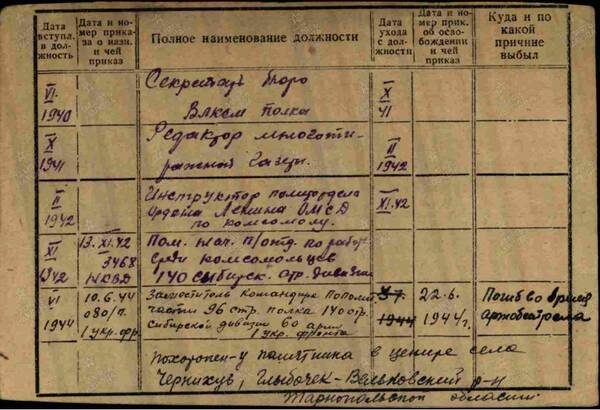 Дата вступл. в должность
Дата и номер приказа о назн. и чей приказ
Полное наименование должности
Дата ухода с должности
Дата и номер прик. об освобождении и чей приказ
Куда и по какой причине выбыл
VI 1940
Секретарь бюро
ВЛКСМ полка
X 41
X 1941
Редактор многоти-
ражной газеты.
II 1942
II 1942
Инструктор политотдела
Ордена Ленина ОМСД
по комсомолу.
XI.42
XI 1942
13.XI.42
3468
НКВД
Пом. нач. п/отд. по работе
среди комсомольцев
140 сибирск. стр. дивизии
VI 1944
10.6.44
080/п.
1 Укр. фр.
Заместитель Командира По полит
части 96 стр. полка 140 стр.
Сибирской дивизии 60 арм
1 Укр. фронта
1944
22.6.
1944 г.
Погиб во время
артобстрела
Похоронен-у памятника в центре села
Чернихув, Глыбочек-Вельковский р-н
Тарнопольской области.